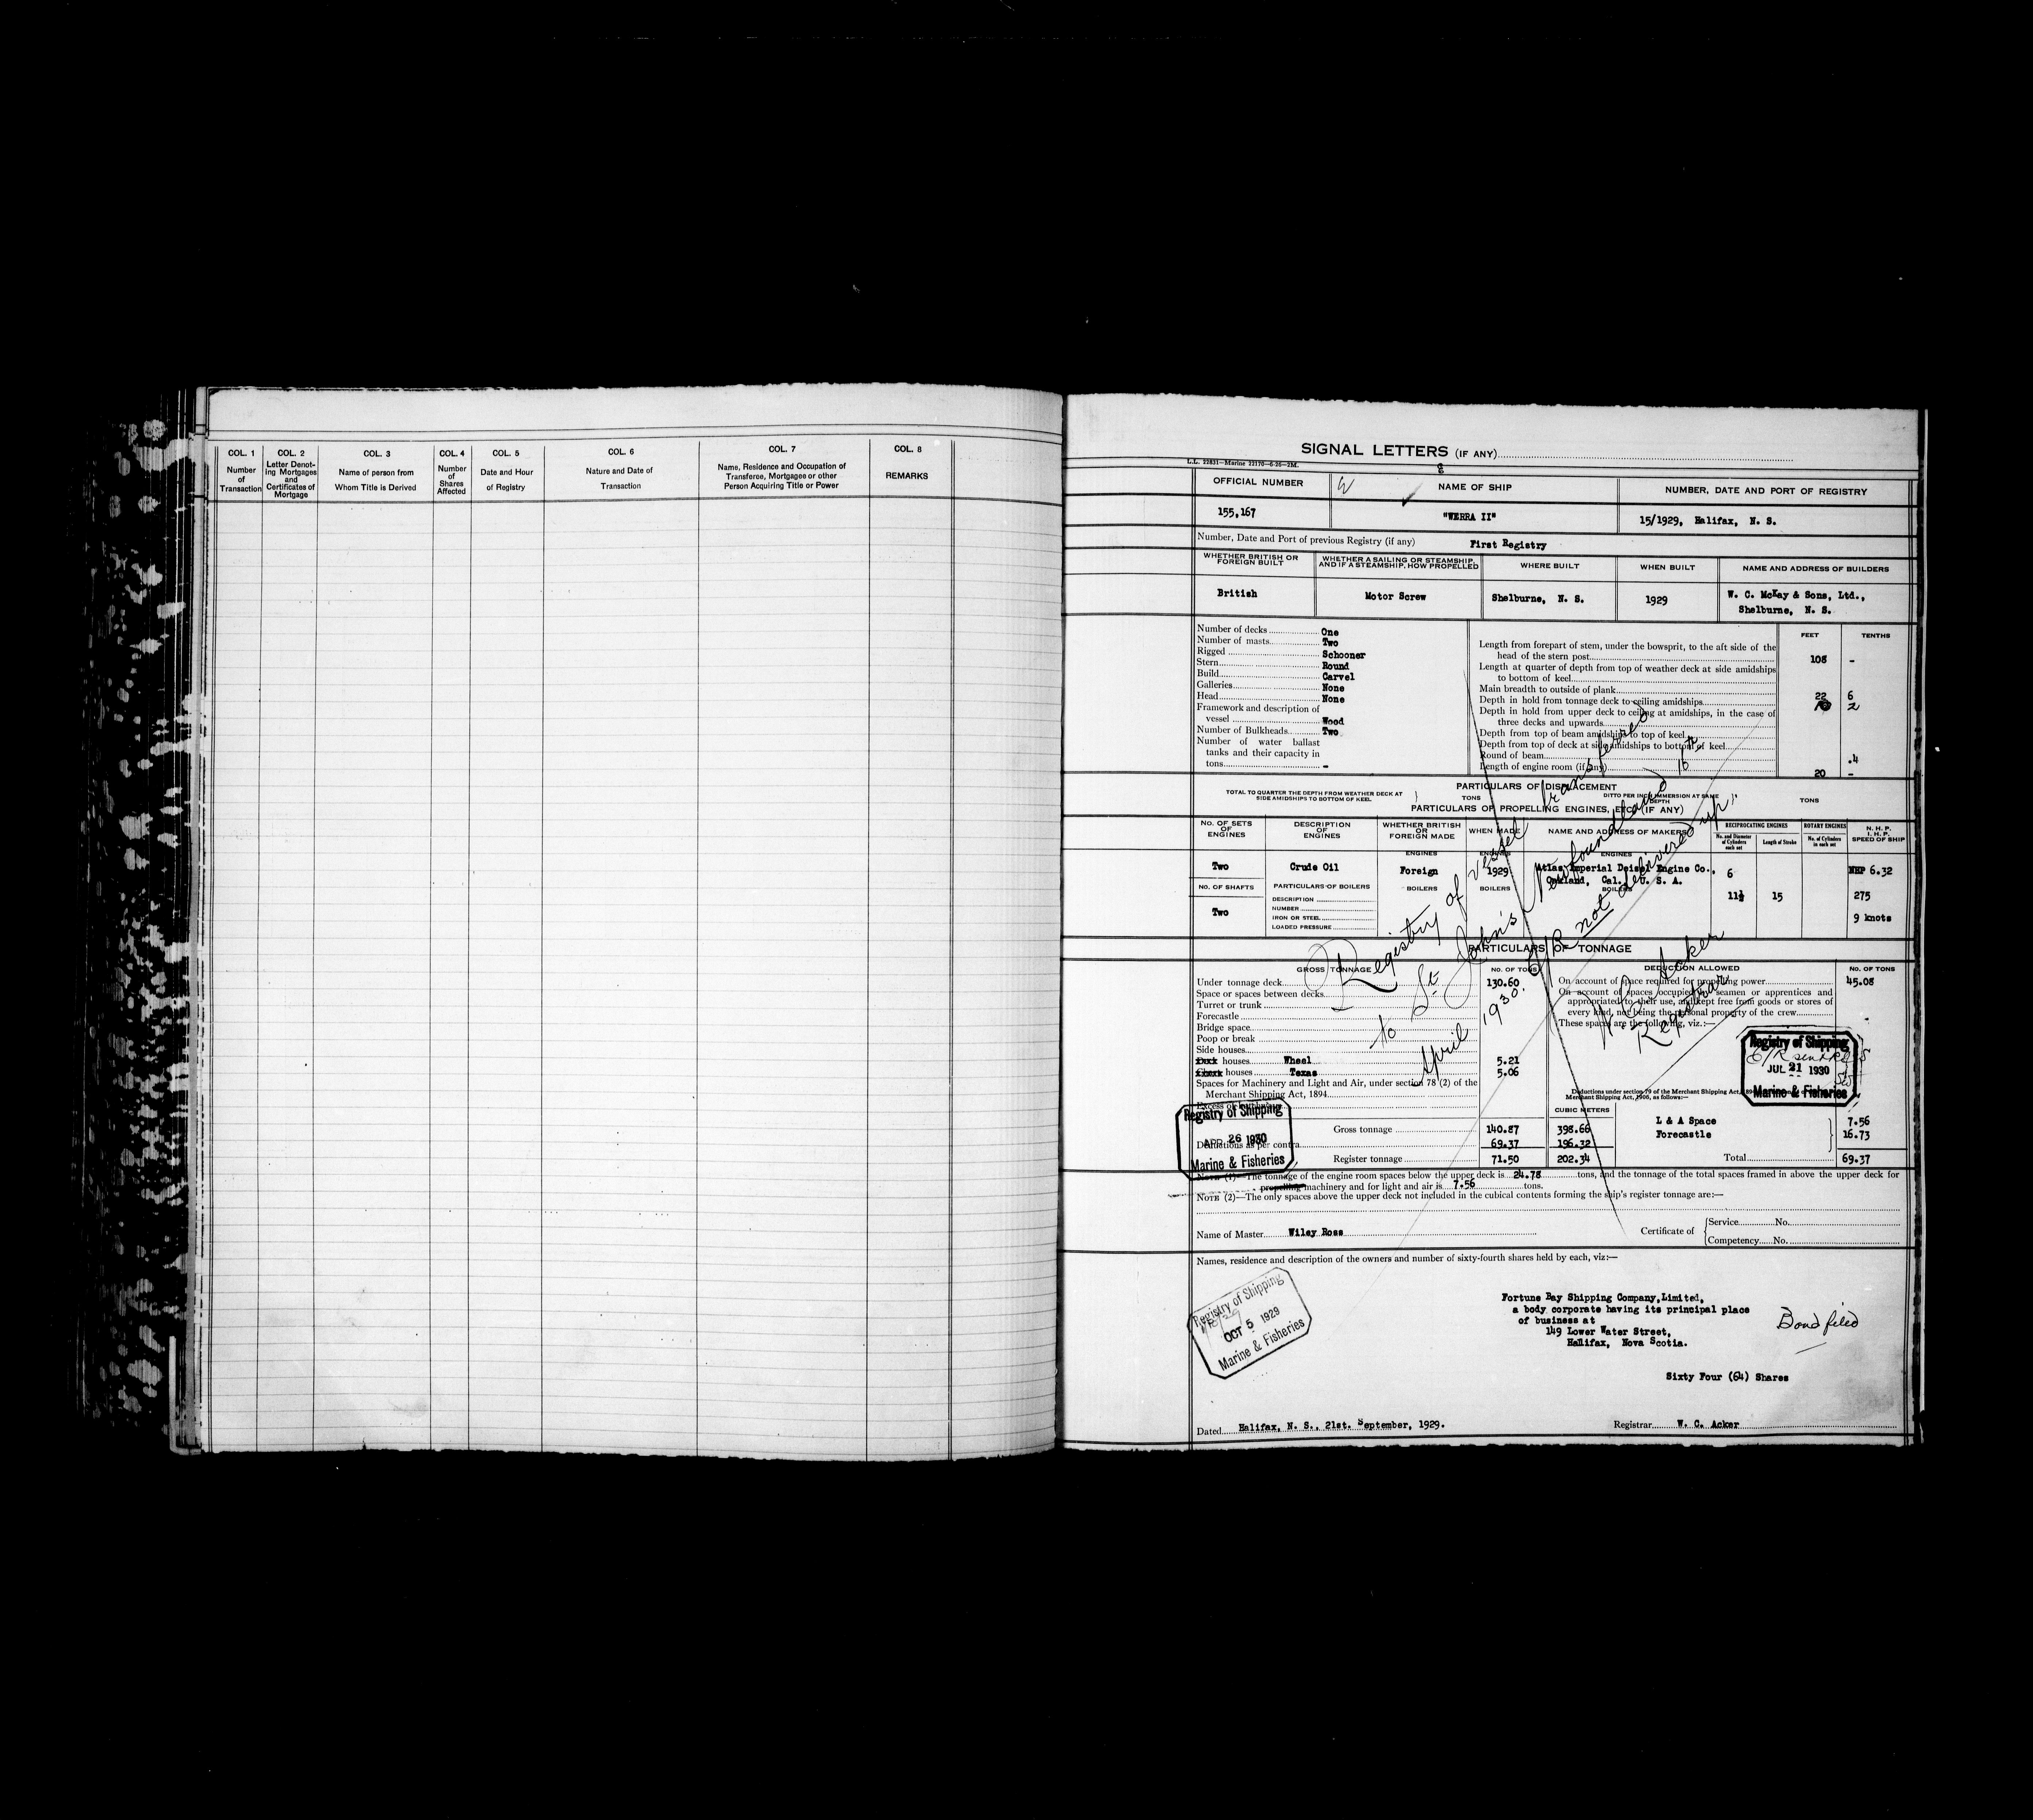 COL. 1
Number
of
Transaction
COL. 2
Letter Denot-
ing Mortgages
and
Certificates of
Mortgage
COL. 3
Name of person from
Whom Title is Derived
COL. 4
Number
of
Shares
Affected
COL. 5
Date and Hour
of Registry
COL. 6
Nature and Date of
Transaction
COL. 7
Name, Residence and Occupation of
Transferee, Mortgagee or other
Person Acquiring Title or Power
COL. 8
REMARKS
SIGNAL LETTERS (IF ANY)
L.L. 22831—Marine 22170—6-26—2M.
OFFICIAL NUMBER
NAME OF SHIP
NUMBER, DATE AND PORT OF REGISTRY
155,167
"WERRA II"
15/1929, Halifax, N. S.
Number, Date and Port of previous Registry (if any) First Registry
WHETHER BRITISH OR
FOREIGN BUILT
WHETHER A SAILING OR STEAMSHIP,
AND IF A STEAMSHIP, HOW PROPELLED
WHERE BUILT
WHEN BUILT
NAME AND ADDRESS OF BUILDERS
British
Motor Screw
Shelburne, N. S.
1929
W. C. McKay & Sons, Ltd.,
Shelburne, N. S.
Number of decks One
Number of masts Two
Rigged Schooner
Stern Round
Build Carvel
Galleries None
Head None
Framework and description of
vessel Wood
Number of Bulkheads Two
Number of water ballast
tanks and their capacity in
tons -
FEET TENTHS
Length from forepart of stem, under the bowsprit, to the aft side of the
head of the stern post 108 -
Length at quarter of depth from top of weather deck at side amidships
to bottom of keel
Main breadth to outside of plank 22 6
Depth in hold from tonnage deck to ceiling amidships 2
Depth in hold from upper deck to ceiling at amidships, in the case of
three decks and upwards
Depth from top of beam amidships to top of keel
Depth from top of deck at side amidships to bottom of keel
Round of beam .4
Length of engine room (if any) 20 -
PARTICULARS OF DISPLACEMENT
TOTAL TO QUARTER THE DEPTH FROM WEATHER DECK AT
SIDE AMIDSHIPS TO BOTTOM OF KEEL
TONS
DITTO PER INCH IMMERSION AT SAME
DEPTH
TONS
PARTICULARS OF PROPELLING ENGINES, ETC. (IF ANY)
No. OF SETS
OF
ENGINES
DESCRIPTION
OF
ENGINES
WHETHER BRITISH
OR
FOREIGN MADE
WHEN MADE
NAME AND ADDRESS OF MAKERS
RECIPROCATING ENGINES
No. and Diameter
of Cylinders
each set
Length of Stroke
ROTARY ENGINES
No. of Cylinders
in each set
N. H. P.
I. H. P.
SPEED OF SHIP
ENGINES
ENGINES
ENGINES
Two
Crude Oil
Foreign
1929
Atlas Imperial Deisel Engine Co.,
Oakland, Cal., U. S. A.
6
NHP 6.32
No. OF SHAFTS
PARTICULARS OF BOILERS
BOILERS
BOILERS
BOILERS
11½
15
275
Two
DESCRIPTION
NUMBER
IRON OR STEEL
LOADED PRESSURE
9 knots
PARTICULARS OF TONNAGE
GROSS TONNAGE
No. OF TONS
DEDUCTION ALLOWED
No. OF TONS
Under tonnage deck 130.60
Space or spaces between decks
Turret or trunk
Forecastle
Bridge space
Poop or break
Side houses
houses Wheel 5.21
houses Texas 5.06
Spaces for Machinery and Light and Air, under section 78 (2) of the
Merchant Shipping Act, 1894
Gross tonnage 140.87 398.66
Deductions as per contra 69.37 196.32
Register tonnage 71.50 202.34
On account of space required for propelling power 45.08
On account of spaces occupied by seamen or apprentices and
appropriated to their use, and kept free from goods or stores of
every kind, not being the personal property of the crew
These spaces are the following, viz.:—
CUBIC METERS
L & A Space 7.56
Forecastle 16.73
Total 69.37
Registry of vessel transferred
to St. John's Newfoundland 16th
April 1930. C/R not delivered up"
W. C. Acker
Registrar
Registry of Shipping
JUL 21 1930
Marine & Fisheries
Registry of Shipping
APR 26 1930
Marine & Fisheries
NOTE (1)—The tonnage of the engine room spaces below the upper deck is 24.78 tons, and the tonnage of the total spaces framed in above the upper deck for
propelling machinery and for light and air is 7.56 tons.
NOTE (2)—The only spaces above the upper deck not included in the cubical contents forming the ship's register tonnage are:—
Name of Master Wiley Ross
Certificate of
Service No.
Competency No.
Names, residence and description of the owners and number of sixty-fourth shares held by each, viz:—
Registry of Shipping
OCT 5 1929
Marine & Fisheries
Fortune Bay Shipping Company,Limited,
a body corporate having its principal place
of business at
149 Lower Water Street,
Halifax, Nova Scotia.
Bond filed
Sixty Four (64) Shares
Dated Halifax, N. S., 21st. September, 1929.
Registrar W. C. Acker